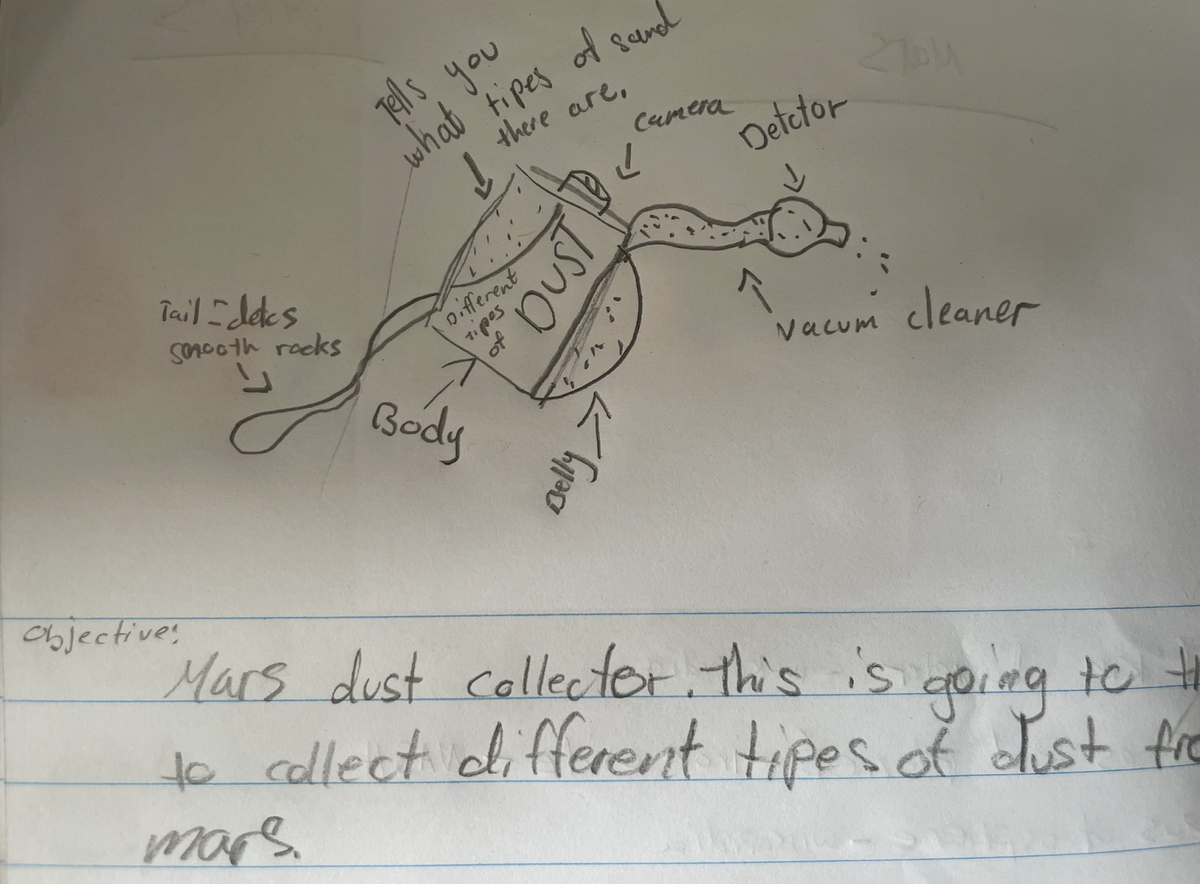 Tells you
what tipes of sand
there are.
camera
Detctor
Different
tipes
of
DUST
Tail - detcs
smooth rocks
vacum cleaner
Body
Belly
Objective:
Mars dust collector. This is going to
to collect different tipes of dust
mars.